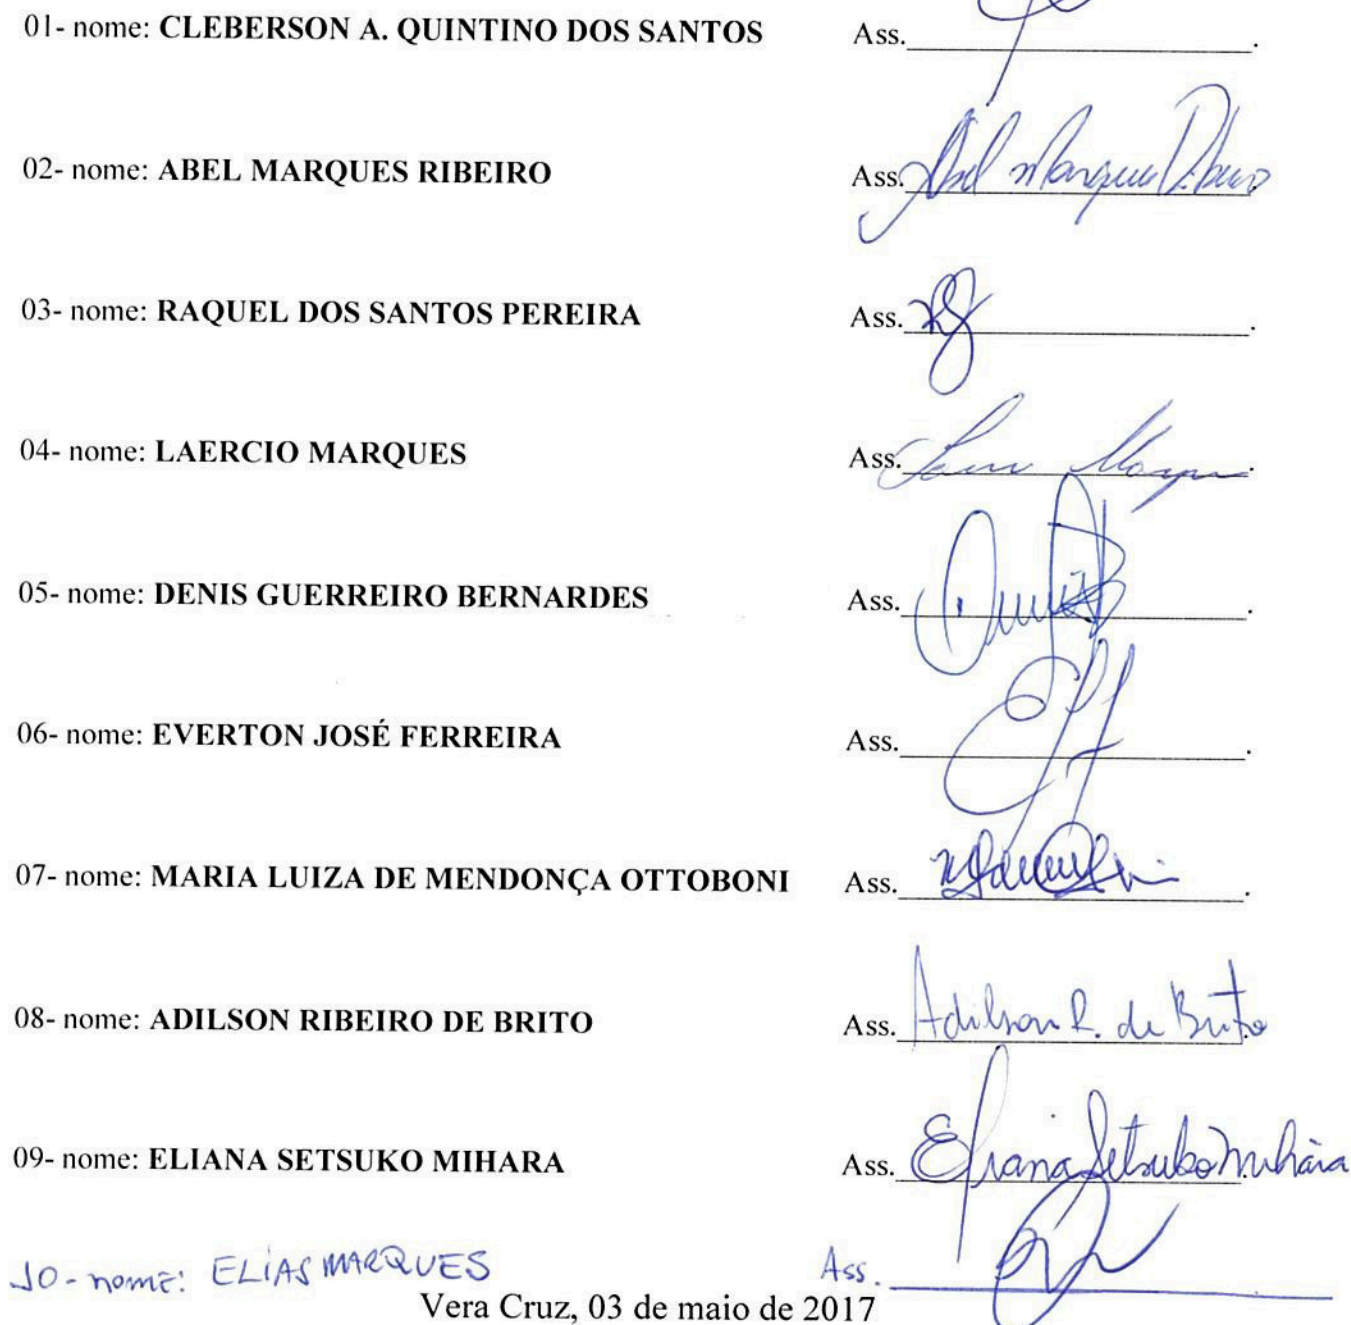 01- nome: CLEBERSON A. QUINTINO DOS SANTOS Ass.
02- nome: ABEL MARQUES RIBEIRO Ass. Abel Marques Ribeiro
03- nome: RAQUEL DOS SANTOS PEREIRA Ass.
04- nome: LAERCIO MARQUES Ass.
05- nome: DENIS GUERREIRO BERNARDES Ass.
06- nome: EVERTON JOSÉ FERREIRA Ass.
07- nome: MARIA LUIZA DE MENDONÇA OTTOBONI Ass.
08- nome: ADILSON RIBEIRO DE BRITO Ass. Adilson R. de Brito
09- nome: ELIANA SETSUKO MIHARA Ass. Eliana Setsuko Mihara
10- nome: ELIAS MARQUES Ass.
Vera Cruz, 03 de maio de 2017